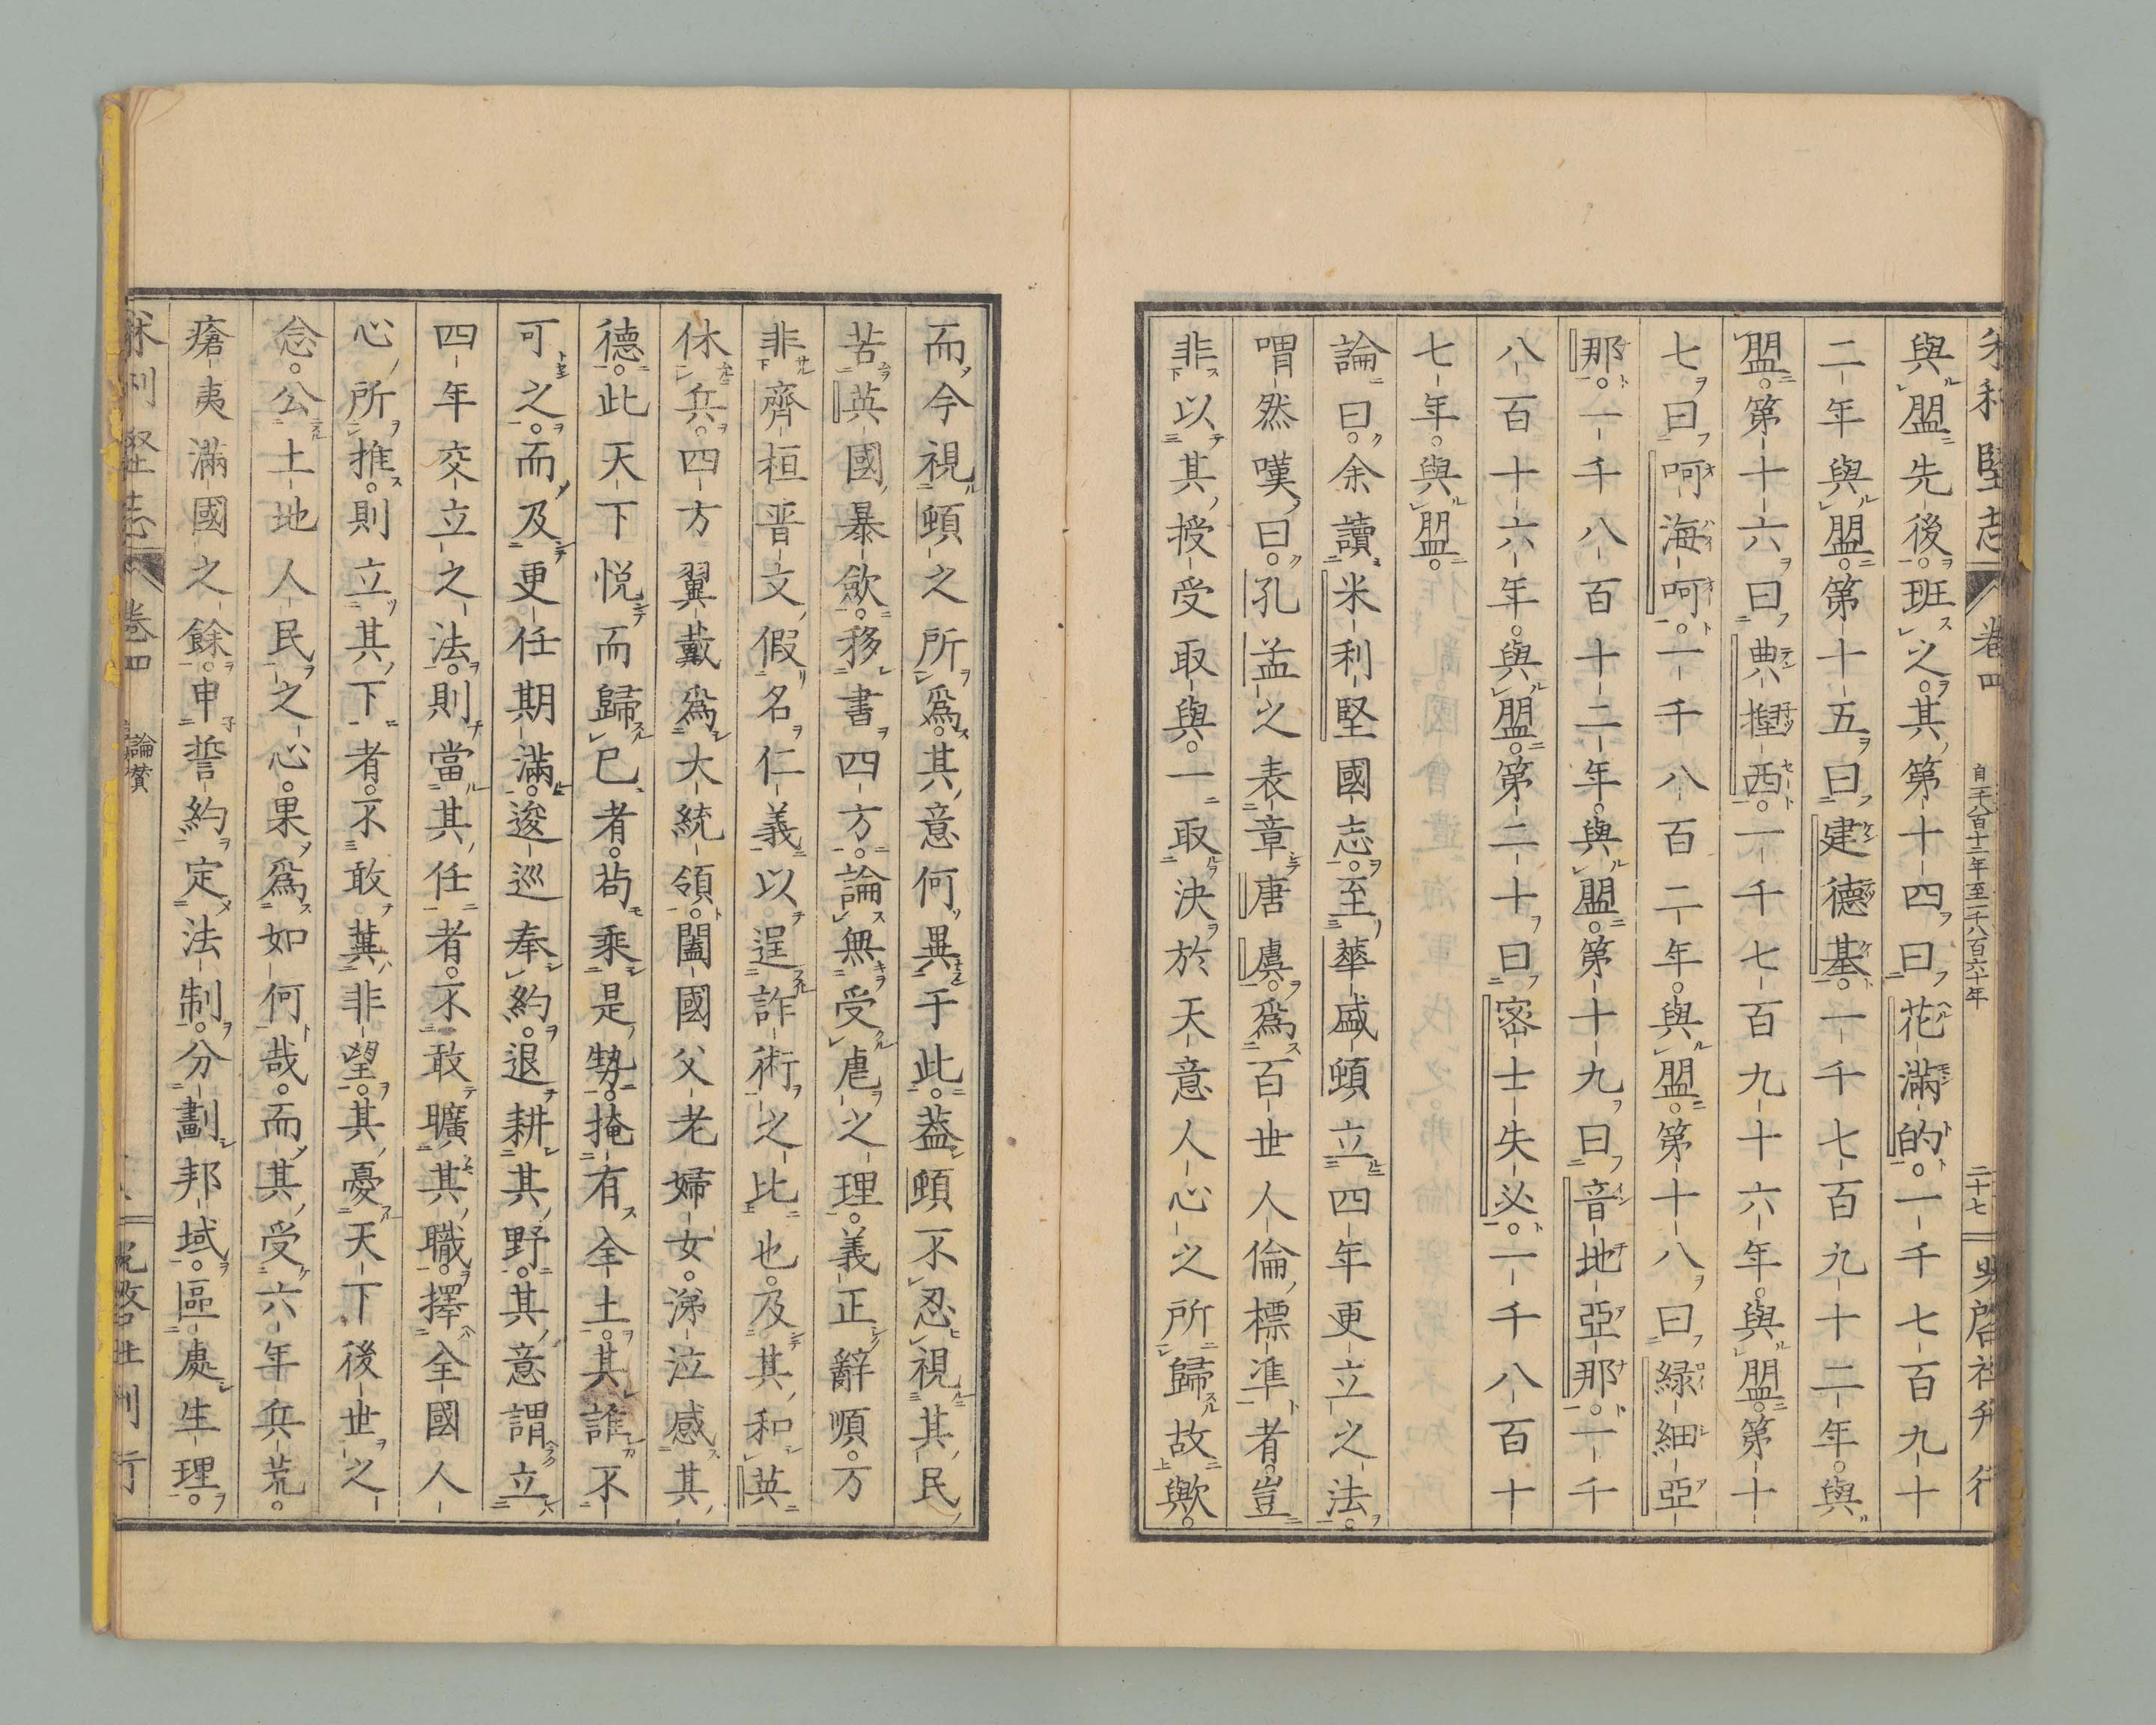 米利堅志
卷四
自千八百十二年至千八百六十年
二十七
光啓社刊行
與盟先後。班之。其第十四曰花滿的。一千七百九十
二年與盟。第十五曰建德基。一千七百九十二年。與
盟。第十六曰典揑西。一千七百九十六年。與盟。第十
七曰呵海呵。一千八百二年。與盟。第十八曰緑細亞
那。一千八百十二年。與盟。第十九曰音地亞那。一千
八百十六年。與盟。第二十曰密士失必。一千八百十
七年。與盟。
論曰。余讀米利堅國志。至華盛頓立四年更立之法。
喟然嘆曰。孔孟之表章唐虞。爲百世人倫標準者。豈
非以其授受取與。一取決於天意人心之所歸故歟。
而今視頓之所爲。其意何異于此。蓋頓不忍視其民
苦英國暴斂。移書四方。論無受虐之理。義正辭順。方
非齊桓晋文假名仁義以逞詐術之比也。及其和英
休兵。四方翼戴爲大統領。闔國父老婦女。涕泣感其
德。此天下悦而歸已者。苟乘是勢。掩有全土。其誰不
可之。而及更任期滿。逡巡奉約。退耕其野。其意謂立
四年交立之法。則當其任者。不敢曠其職。擇全國人
心所推。則立其下者。不敢冀非望。其憂天下後世之
念。公土地人民之心。果爲如何哉。而其受六年兵荒。
瘡夷滿國之餘。申誓約定法制。分劃邦域。區處生理。
米利堅志
卷四
論贊
光啓社刊行